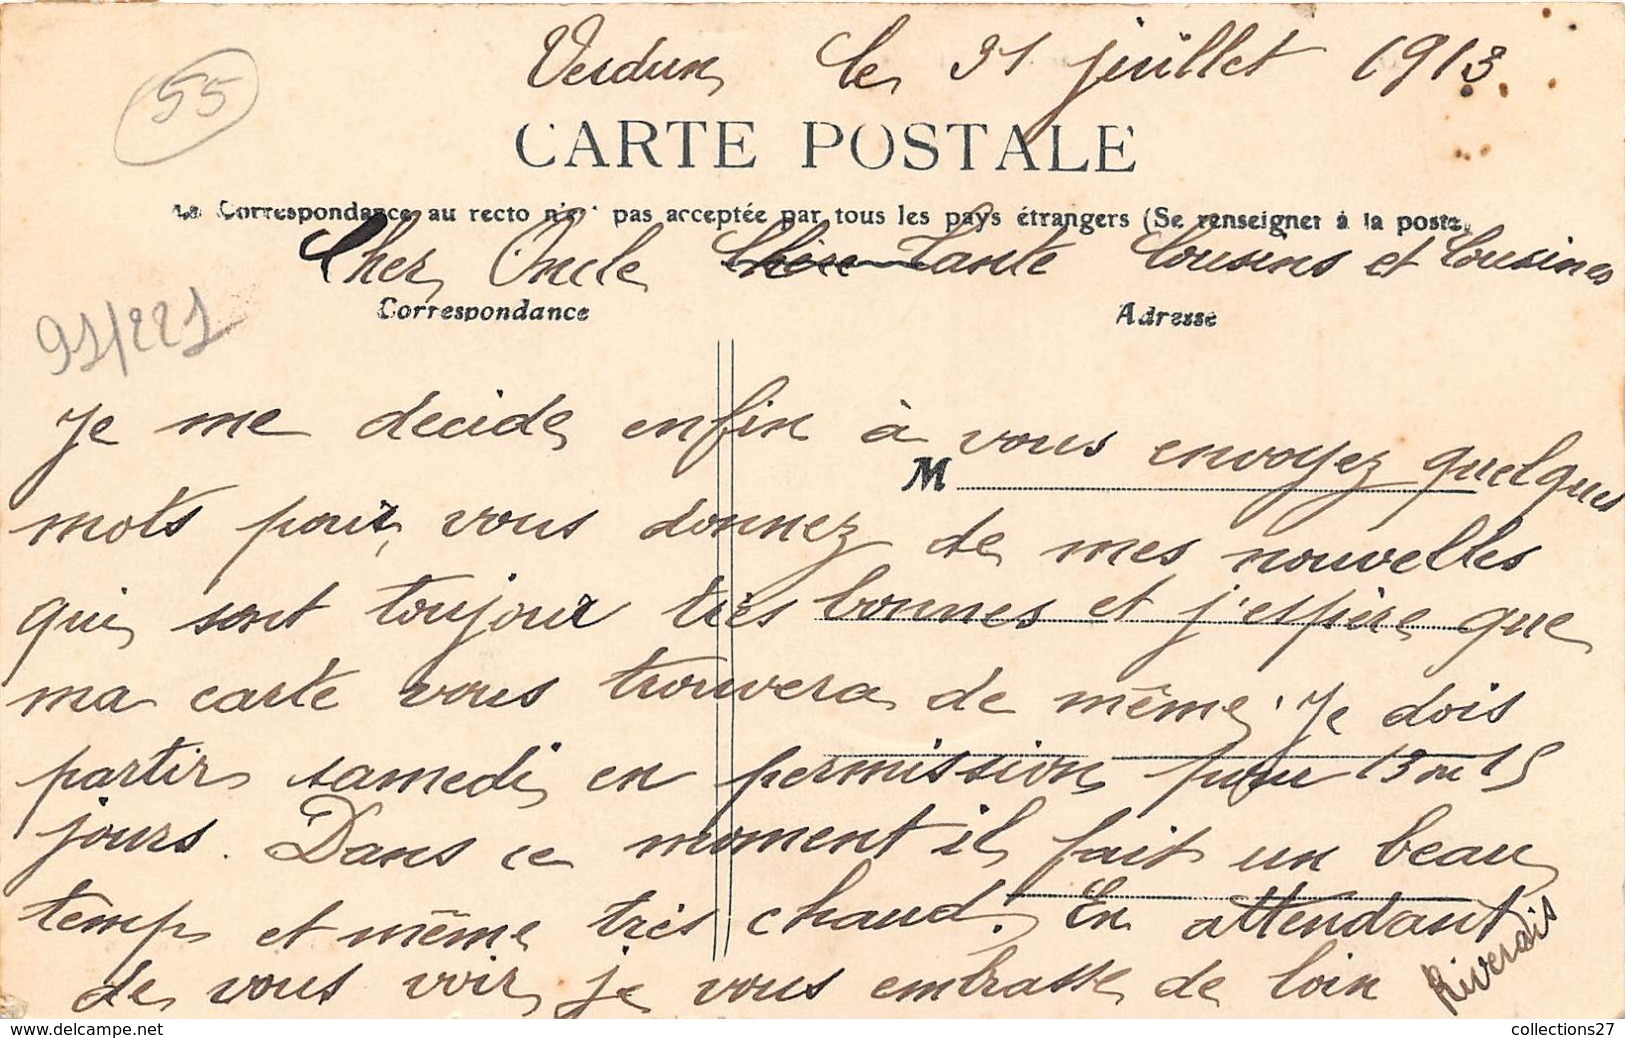 Verdun le 31 juillet 1913.
55
CARTE POSTALE
La Correspondance au recto n'est pas acceptée par tous les pays étrangers (Se renseigner à la poste)
Cher Oncle Chère Tante Cousins et Cousines
Correspondance Adresse
91/221
Je me decide enfin à vous envoyez quelques
M
mots pour vous donnez de mes nouvelles
qui sont toujour très bonnes et j'espère que
ma carte vous trouvera de même. Je dois
partir samedi en permission pour 13 ou 15
jours. Dans ce moment il fait un beau
temp et même très chaud. En attendant
de vous voir je vous embrasse de loin
Riverais
delcampe.net
collections27